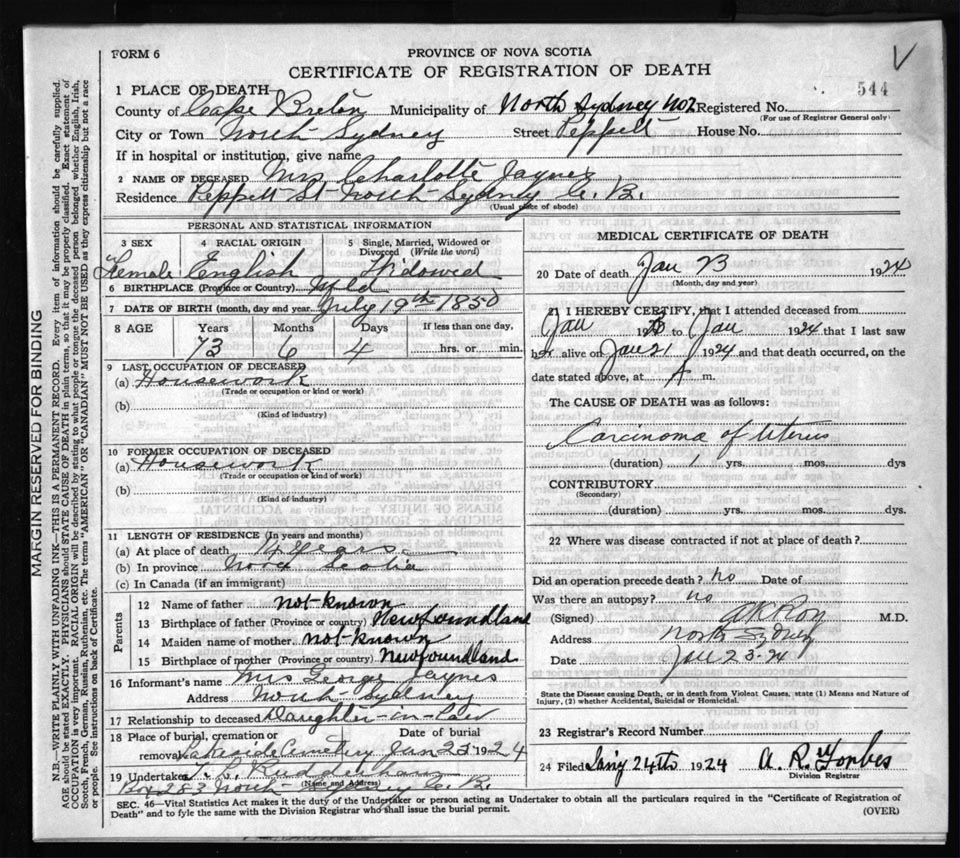 FORM 6
PROVINCE OF NOVA SCOTIA
CERTIFICATE OF REGISTRATION OF DEATH
544
1 PLACE OF DEATH
County of Cape Breton Municipality of North Sydney No2 Registered No.
(For use of Registrar General only)
City or Town North Sydney Street Peppett House No.
If in hospital or institution, give name
2 NAME OF DECEASED Mrs Charlotte Jaynes
Residence Peppett St North Sydney C. B.
(Usual place of abode)
PERSONAL AND STATISTICAL INFORMATION
3 SEX 4 RACIAL ORIGIN 5 Single, Married, Widowed or Divorced (Write the word)
Female English Widowed
6 BIRTHPLACE (Province or Country) Nfld
7 DATE OF BIRTH (month, day and year) July 19th 1850
8 AGE Years Months Days If less than one day,
73 6 4 hrs. or min.
9 LAST OCCUPATION OF DECEASED
(a) Housework
(Trade or occupation or kind or work)
(b)
(Kind of industry)
10 FORMER OCCUPATION OF DECEASED
(a) Housework
(Trade or occupation or kind of work)
(b)
(Kind of industry)
11 LENGTH OF RESIDENCE (In years and months)
(a) At place of death years
(b) In province Nova Scotia
(c) In Canada (if an immigrant)
Parents
12 Name of father not-known
13 Birthplace of father (Province or country) Newfoundland
14 Maiden name of mother not-known
15 Birthplace of mother (Province or country) Newfoundland
16 Informant's name Mrs George Jaynes
Address North Sydney
17 Relationship to deceased Daughter-in-law
18 Place of burial, cremation or Date of burial
removal Lakeside Cemetery Jan 25 1924
19 Undertaker
(Name and Address)
Box 283 North Sydney C. B.
MEDICAL CERTIFICATE OF DEATH
20 Date of death Jan 23 1924
(Month, day and year)
21 I HEREBY CERTIFY, that I attended deceased from
Jan 19 to Jan 1924 that I last saw
her alive on Jan 21 1924 and that death occurred, on the
date stated above, at A m.
The CAUSE OF DEATH was as follows:
Carcinoma of Uterus
(duration) 1 yrs. mos. dys
CONTRIBUTORY
(Secondary)
(duration) yrs. mos. dys.
22 Where was disease contracted if not at place of death?
Did an operation precede death? no Date of
Was there an autopsy? no
(Signed) M.D.
Address North Sydney
Date Jan 23-24
State the Disease causing Death, or in death from Violent Causes, state (1) Means and Nature of
Injury, (2) whether Accidental, Suicidal or Homicidal.
23 Registrar's Record Number
24 Filed 24th 1924 A. R. Forbes
Division Registrar
SEC. 46—Vital Statistics Act makes it the duty of the Undertaker or person acting as Undertaker to obtain all the particulars required in the "Certificate of Registration of
Death" and to fyle the same with the Division Registrar who shall issue the burial permit. (OVER)
MARGIN RESERVED FOR BINDING
N.B.—WRITE PLAINLY WITH UNFADING INK—THIS IS A PERMANENT RECORD. Every item of information should be carefully supplied.
AGE should be stated EXACTLY. PHYSICIANS should STATE CAUSE OF DEATH in plain terms, so that it may be properly classified. Exact statement of
OCCUPATION is very important. RACIAL ORIGIN will be described by stating to what people or tongue the deceased person belonged whether English, Irish,
Scotch, French, German, Russian, Ruthenian, etc. The terms "AMERICAN" OR "CANADIAN" MUST NOT BE USED as they express citizenship but not a race
or people. See instructions on back of Certificate.